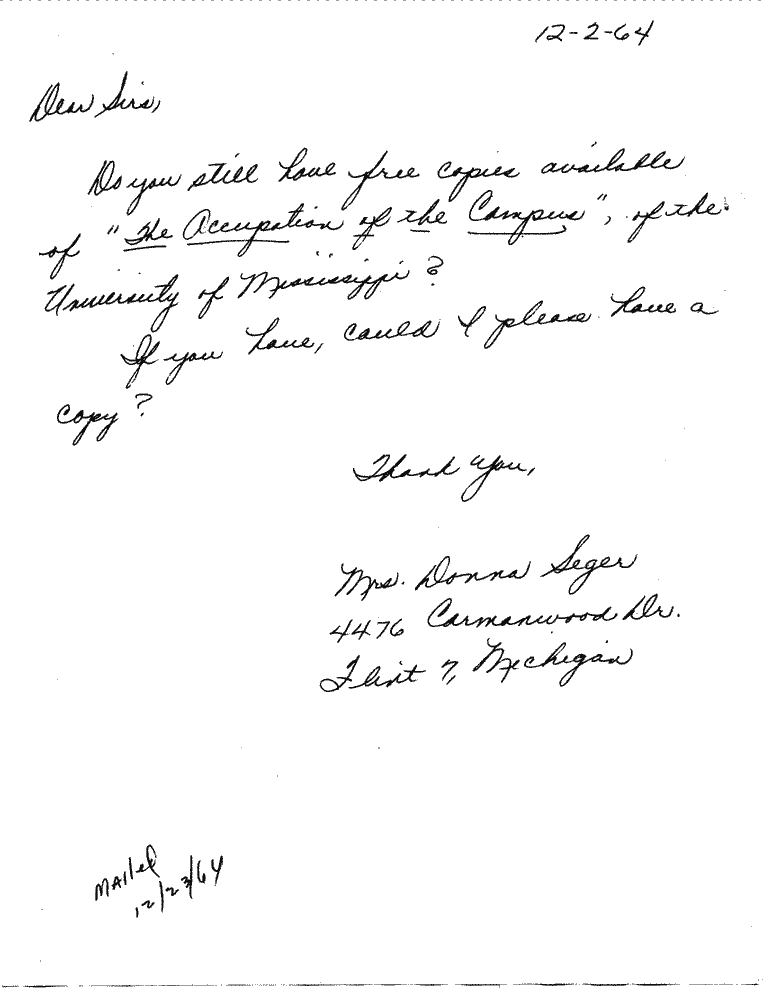 12-2-64
Dear Sirs,
Do you still have free copies available
of "The Occupation of the Campus", of the
University of Mississippi?
If you have, could I please have a
copy?
Thank You,
Mrs. Donna Seger
4476 Carmanwood Dr.
Flint 7, Michigan
Mailed
12/23/64